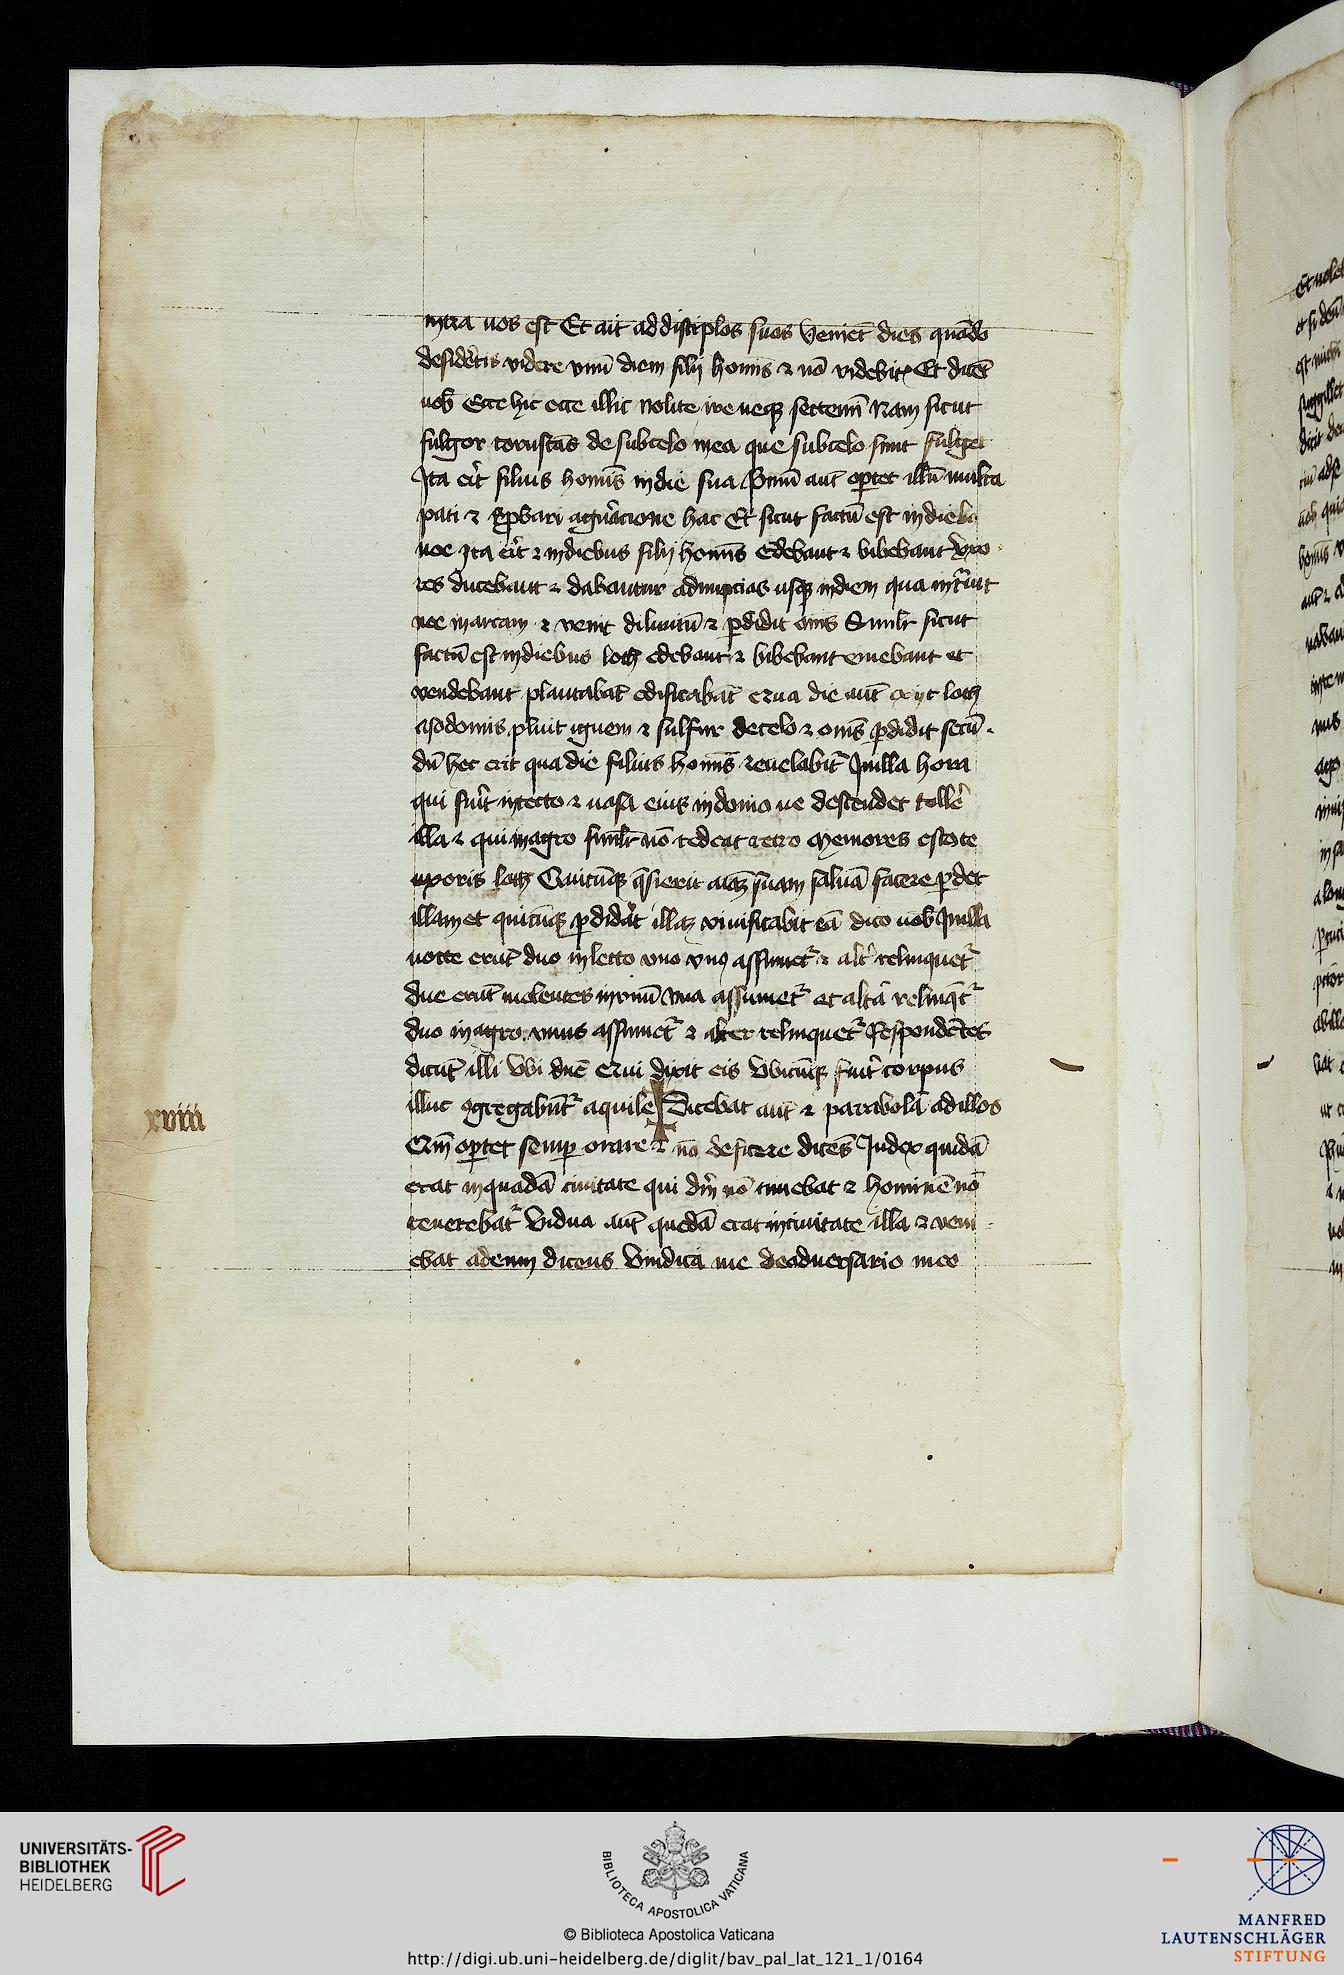 intra uos est Et ait ad discīplos suos Veniēt dies quādo
desidētis videre vnū diem filij homīs ⁊ nō videbitꝭ Et dicēt
uob̄ Ecce hic ecce illic Nolite ire neqꝫ sectemī Nam sicut
fulgor coruscās de sub celo in ea que sub celo sunt fulget
Ita erit filius homīs in die sua Pmū aut̄ oꝑtet illū multa
pati ⁊ reꝓbari a gn̄acione hac Et sicut factū est in dieb⁊
noe Ita erit ⁊ in diebus filij homīs Edebant ⁊ bibebant Vxo
res ducebant ⁊ dabantur ad nupcias usqꝫ in diem qua int̄uit
noe in arcam ⁊ venit diluuiū ⁊ ꝑdidit om̄s Simil̄r sicut
factū est in diebus loth edebant ⁊ bibebant emebant et
vendebant plantabāt edificabāt Qua die aut̄ exijt loth
a sodomis pluit ignem ⁊ sulfur de celo ⁊ om̄s ꝑdidit secū
dū hec erit qua die filius homīs reuelabit᷑ In illa hora
qui fuīt in tecto ⁊ uasa eius in domo ne descendet tollē
illa ⁊ qui in agro simil̄r nō redeat retro Memores estote
uxoris loth Quicūqꝫ q̄sierit aīaꝫ suam saluā facere ꝑdet
illam et quicūqꝫ ꝑdidīt illaꝫ viuificabit eā dico uob̄ In illa
nocte erūt duo in lecto vno vnꝰ assumet᷑ ⁊ alt̄ relinquet᷑
due erūt molentes in vnū vna assumet᷑ et altā relinq̄t᷑
duo in agro vnus assumet᷑ ⁊ alter relinquet᷑ Respondētes
dicūt illi Vbi dn̄e Qui dixit eis Vbicūqꝫ fuīt corpus
illuc ꝯgregabūt᷑ aquile Dicebat aut̄ ⁊ parabolā ad illos
xviii
Qm̄ oꝑtet semꝑ orare ⁊ nō deficere dicēs Iudex quidā
erat in quadā ciuitate qui dm̄ nō timebat ⁊ hominē nō
reuerebat᷑ Vidua aut̄ quedā erat in ciuitate illa ⁊ veni
ebat ad eum dicens Vindica me de aduersario meo
UNIVERSITÄTS-
BIBLIOTHEK
HEIDELBERG
BIBLIOTECA APOSTOLICA VATICANA
© Biblioteca Apostolica Vaticana
http://digi.ub.uni-heidelberg.de/diglit/bav_pal_lat_121_1/0164
MANFRED
LAUTENSCHLÄGER
STIFTUNG